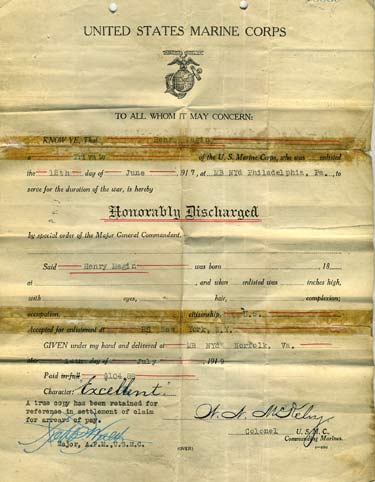 UNITED STATES MARINE CORPS
TO ALL WHOM IT MAY CONCERN:
KNOW YE, That Henry Magin,
a Private of the U. S. Marine Corps, who was enlisted
the 18th day of June 1917, at MB NYd Philadelphia, Pa., to
serve for the duration of the war, is hereby
Honorably Discharged
by special order of the Major General Commandant.
Said Henry Magin was born 18
at , and when enlisted was inches high,
with eyes, hair, complexion;
occupation, citizenship, U.S.
Accepted for enlistment at New York, N.Y.
GIVEN under my hand and delivered at MB NYd Norfolk, Va.
this day of July 1919
Paid in full $104.
Character: "Excellent".
A true copy has been retained for
reference in settlement of claim
for arrears of pay.
Major, A.P.M., U.S.M.C.
Colonel U. S. M. C.
Commanding Marines.
(OVER)